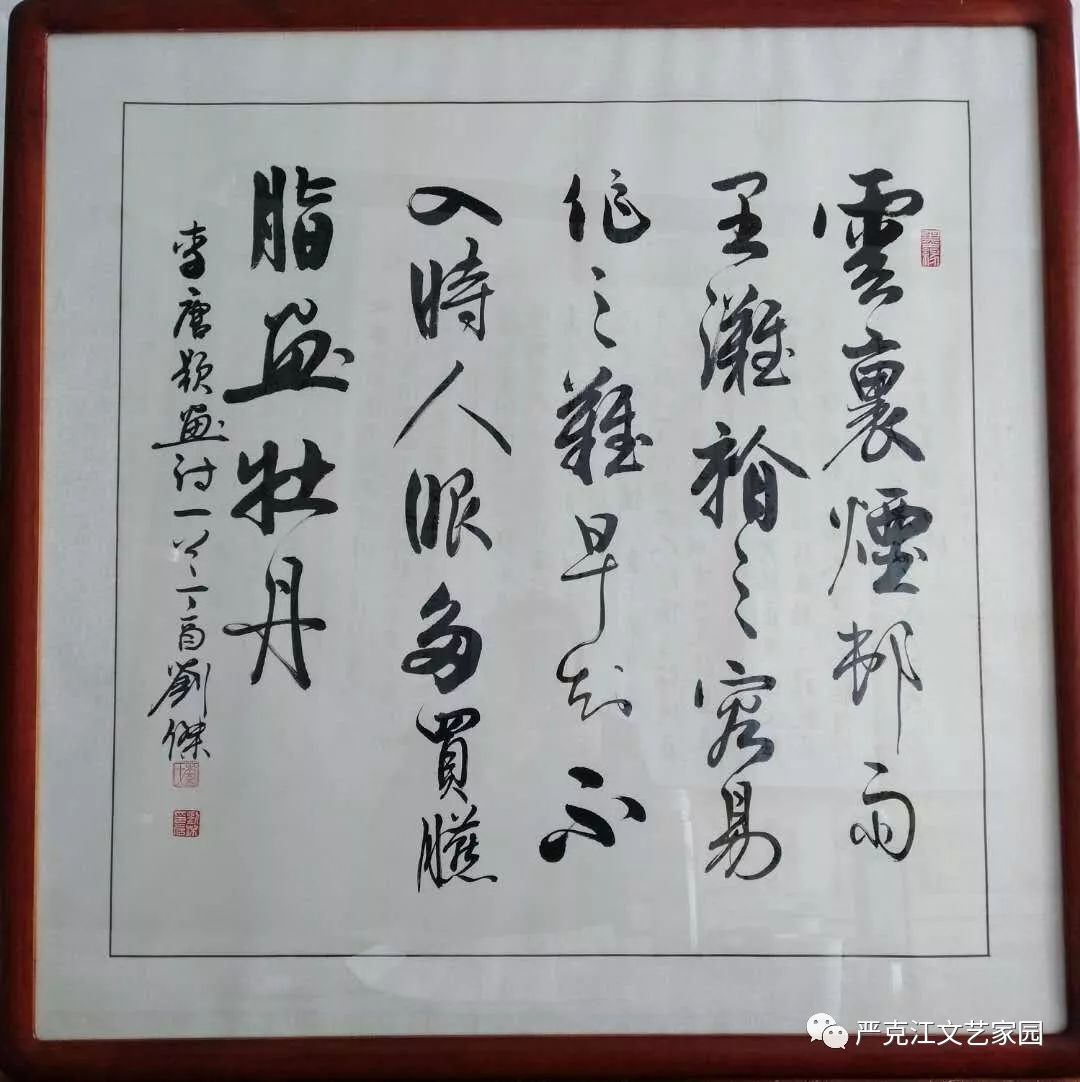 雲裏煙邨雨
里灘看之容易
作之難早知不
入時人眼多買臙
脂畫牡丹
李唐題畫詩一首丁酉劉傑
严克江文艺家园